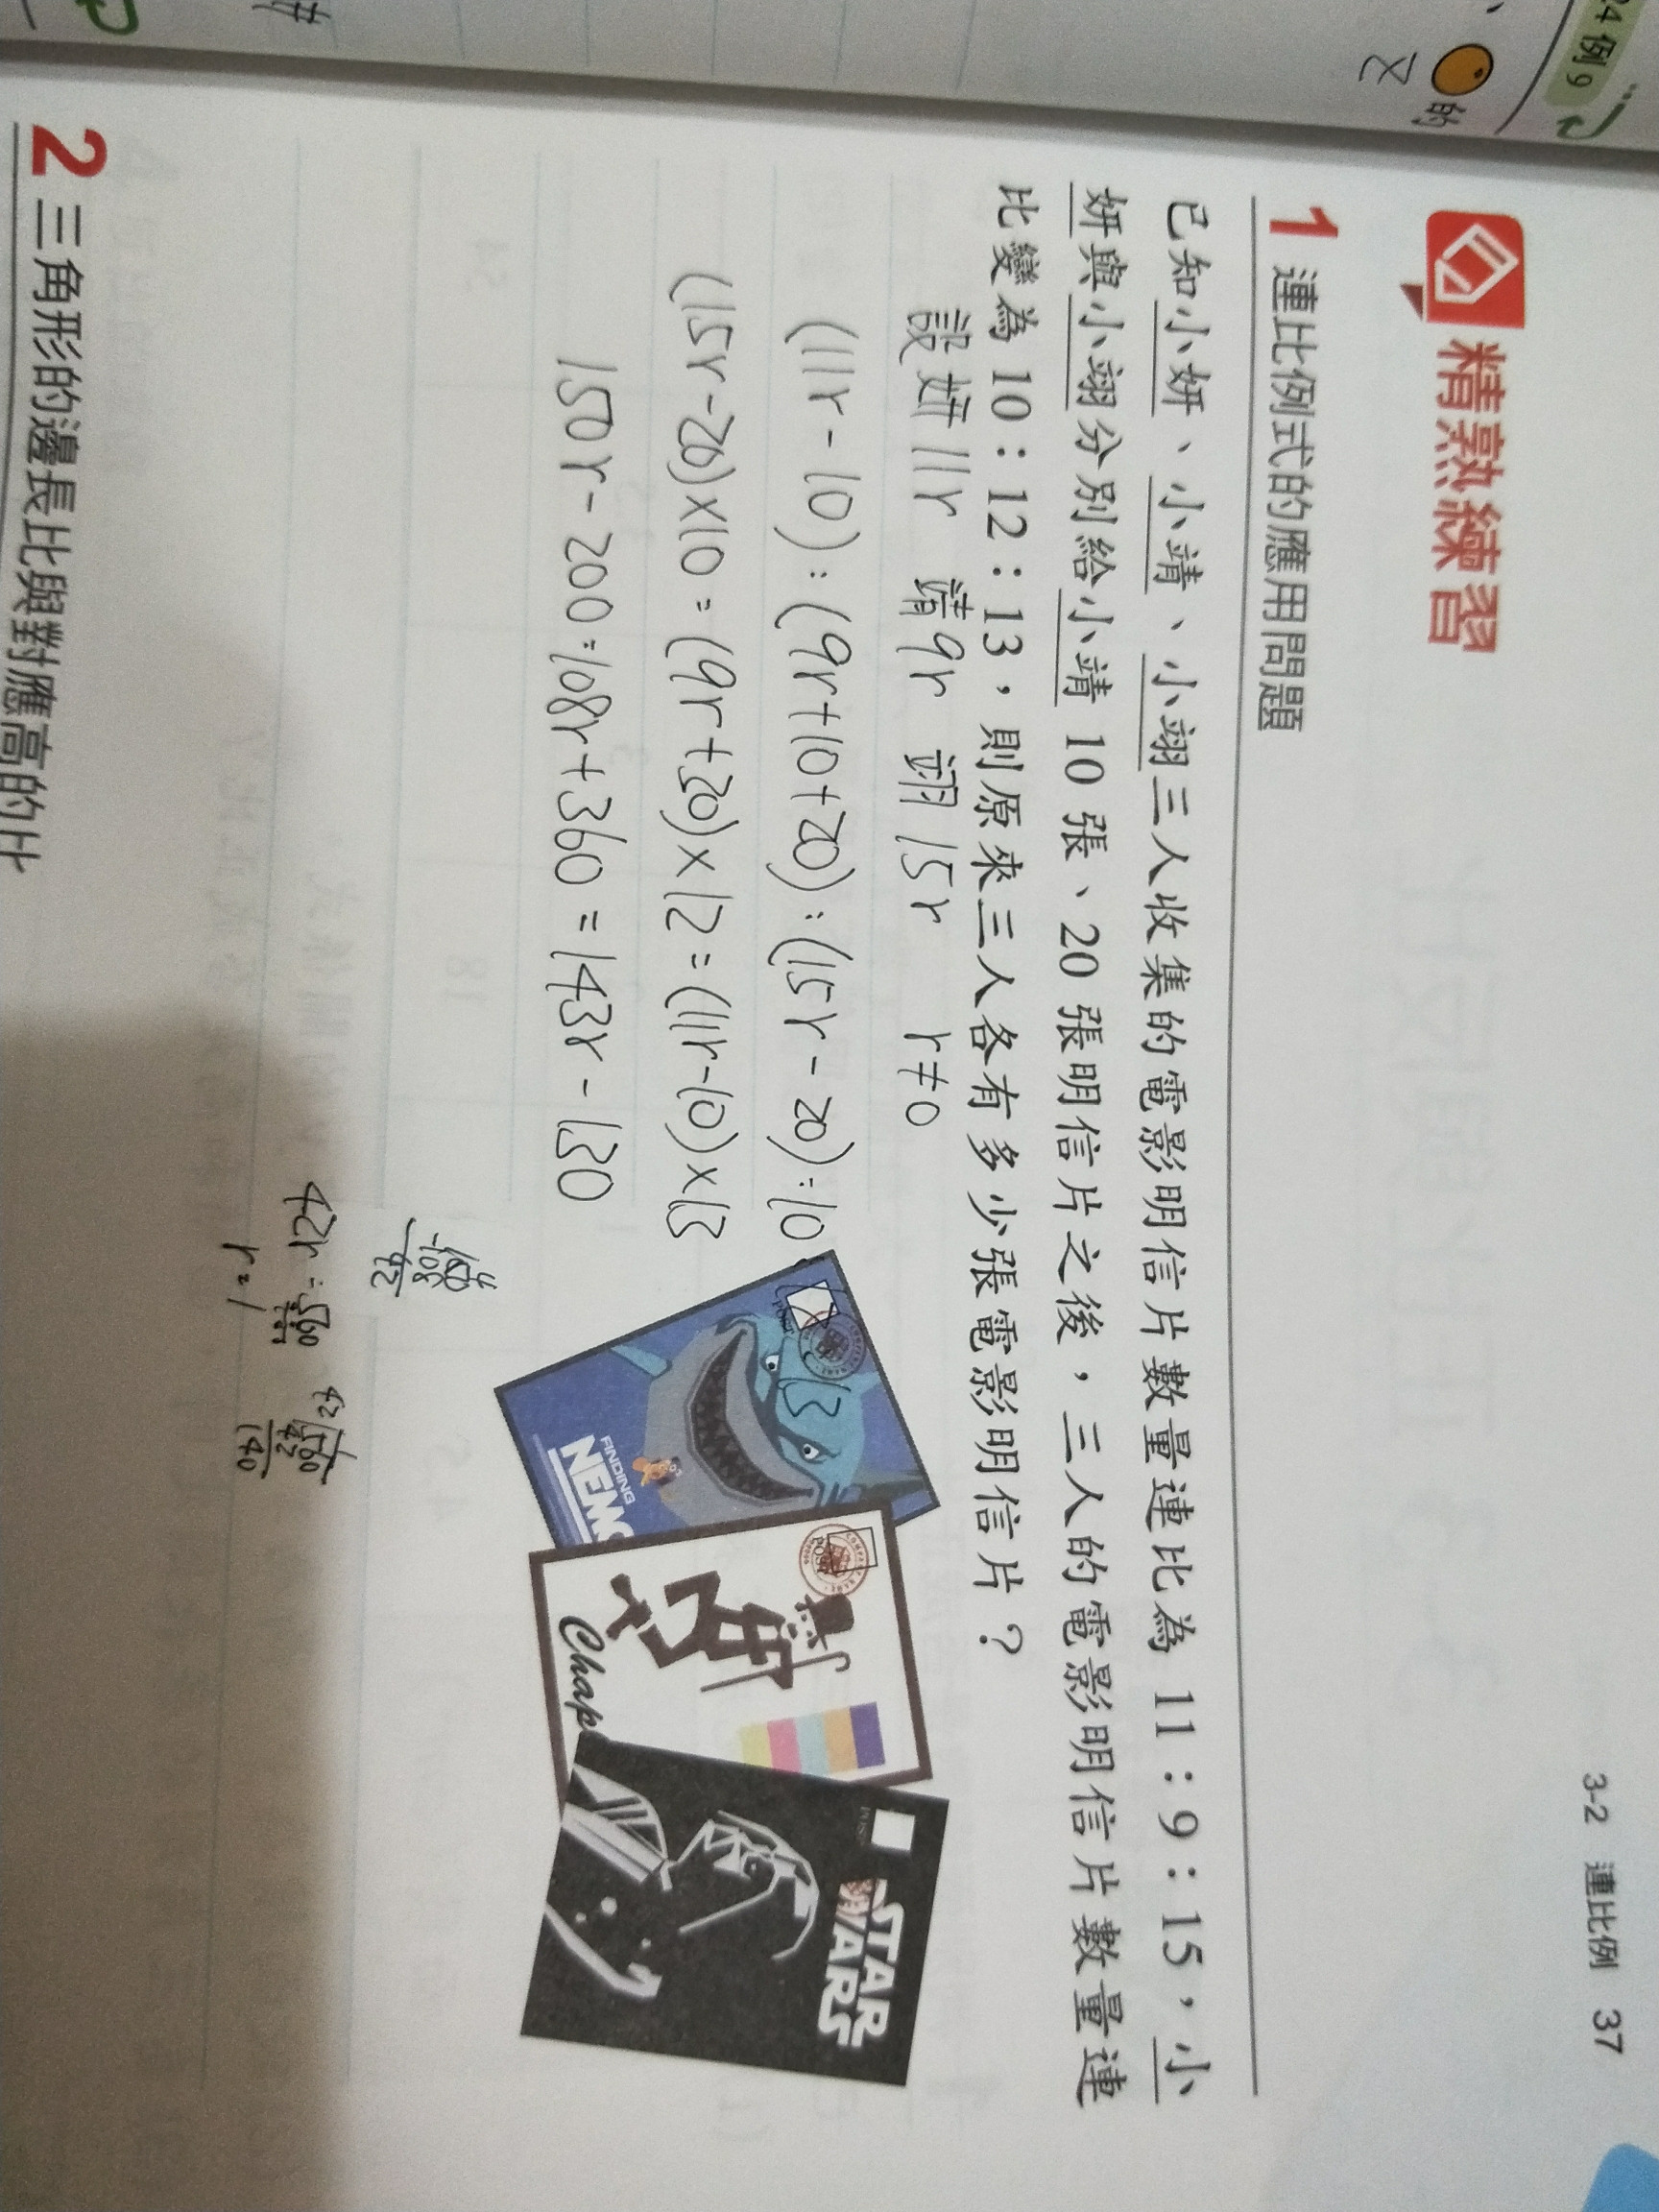 24 例 9
的
3-2 連比例 37
精熟練習
1 連比例式的應用問題
已知小妍、小靖、小翊三人收集的電影明信片數量連比為 11：9：15，小
妍與小翊分別給小靖 10 張、20 張明信片之後，三人的電影明信片數量連
比變為 10：12：13，則原來三人各有多少張電影明信片？
設妍 11r 靖 9r 翊 15r r≠0
(11r-10):(9r+10+20):(15r-20)=10
(15r-20)×10=(9r+30)×12=(11r-10)×13
150r-200=108r+360=143r-130
42r=560
r=1
42
560
42
140
POST
FINDING
NEMO
POST
Chap
POST
STAR
WARS
2 三角形的邊長比與對應高的比